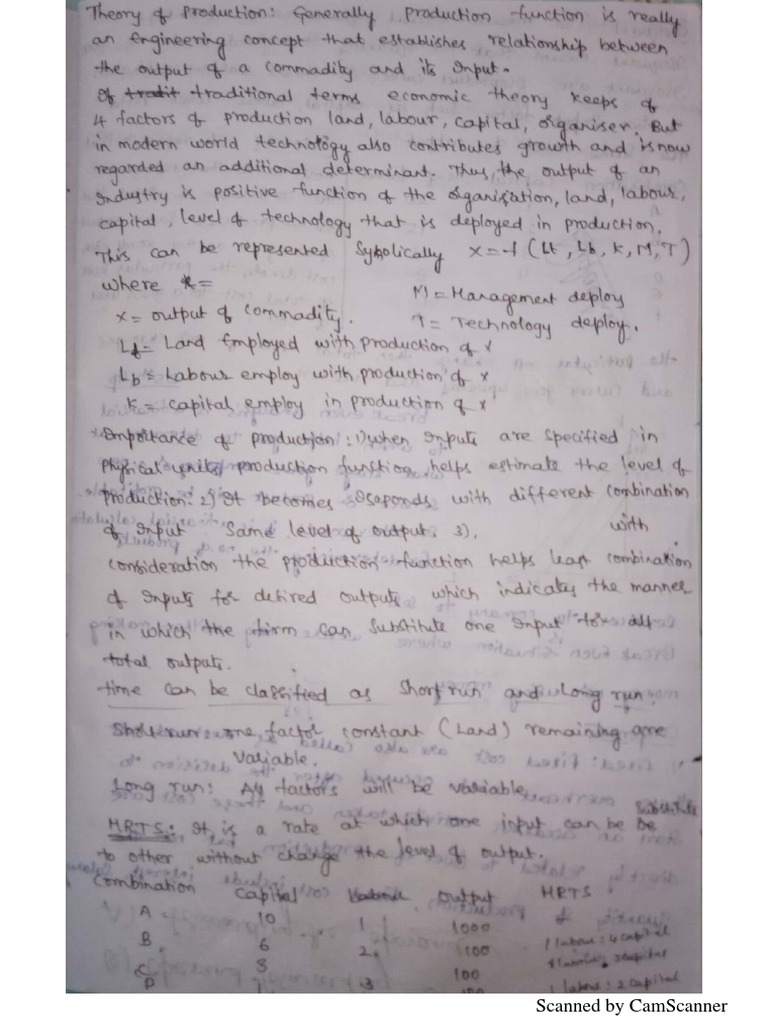 Theory of Production: Generally production function is really
an Engineering concept that establishes relationship between
the output of a commadity and its Input.
Of tradit traditional terms economic theory keeps of
4 factors of production land, labour, capital, organiser. But
in modern world technology also contributes growth and is now
regarded an additional determinant. Thus, the output of an
Industry is positive function of the organisation, land, labour,
capital, level of technology that is deployed in production.
This can be represented Symbolically X=f (Lt, Lb, K, M, T)
where x= M= Management deploy
X= output of commadity. T= Technology deploy.
Lt= Land Employed with production of x
Lb= Labour employ with production of x
K= capital employ in production of x
Importance of production: 1) when Inputs are specified in
physical units production function helps estimate the level of
production. 2) It becomes with different combination
of Input same level of output. 3). with
consideration the production function helps least combination
of Inputs for desired outputs which indicates the manner
in which the firm can substitute one Input for
total outputs.
time can be classified as Short run and Long run.
Short run: one factor constant (Land) remaining are
Variable.
Long run: All factors will be variable
Substitute
MRTS: It is a rate at which one input can be be
to other without change the level of output.
Combination Capital output MRTS
A 10 1 1000
B 6 2 100 1 labour: 4 capital
C 3 3 100
D 1 labour: 2 capital
Scanned by CamScanner